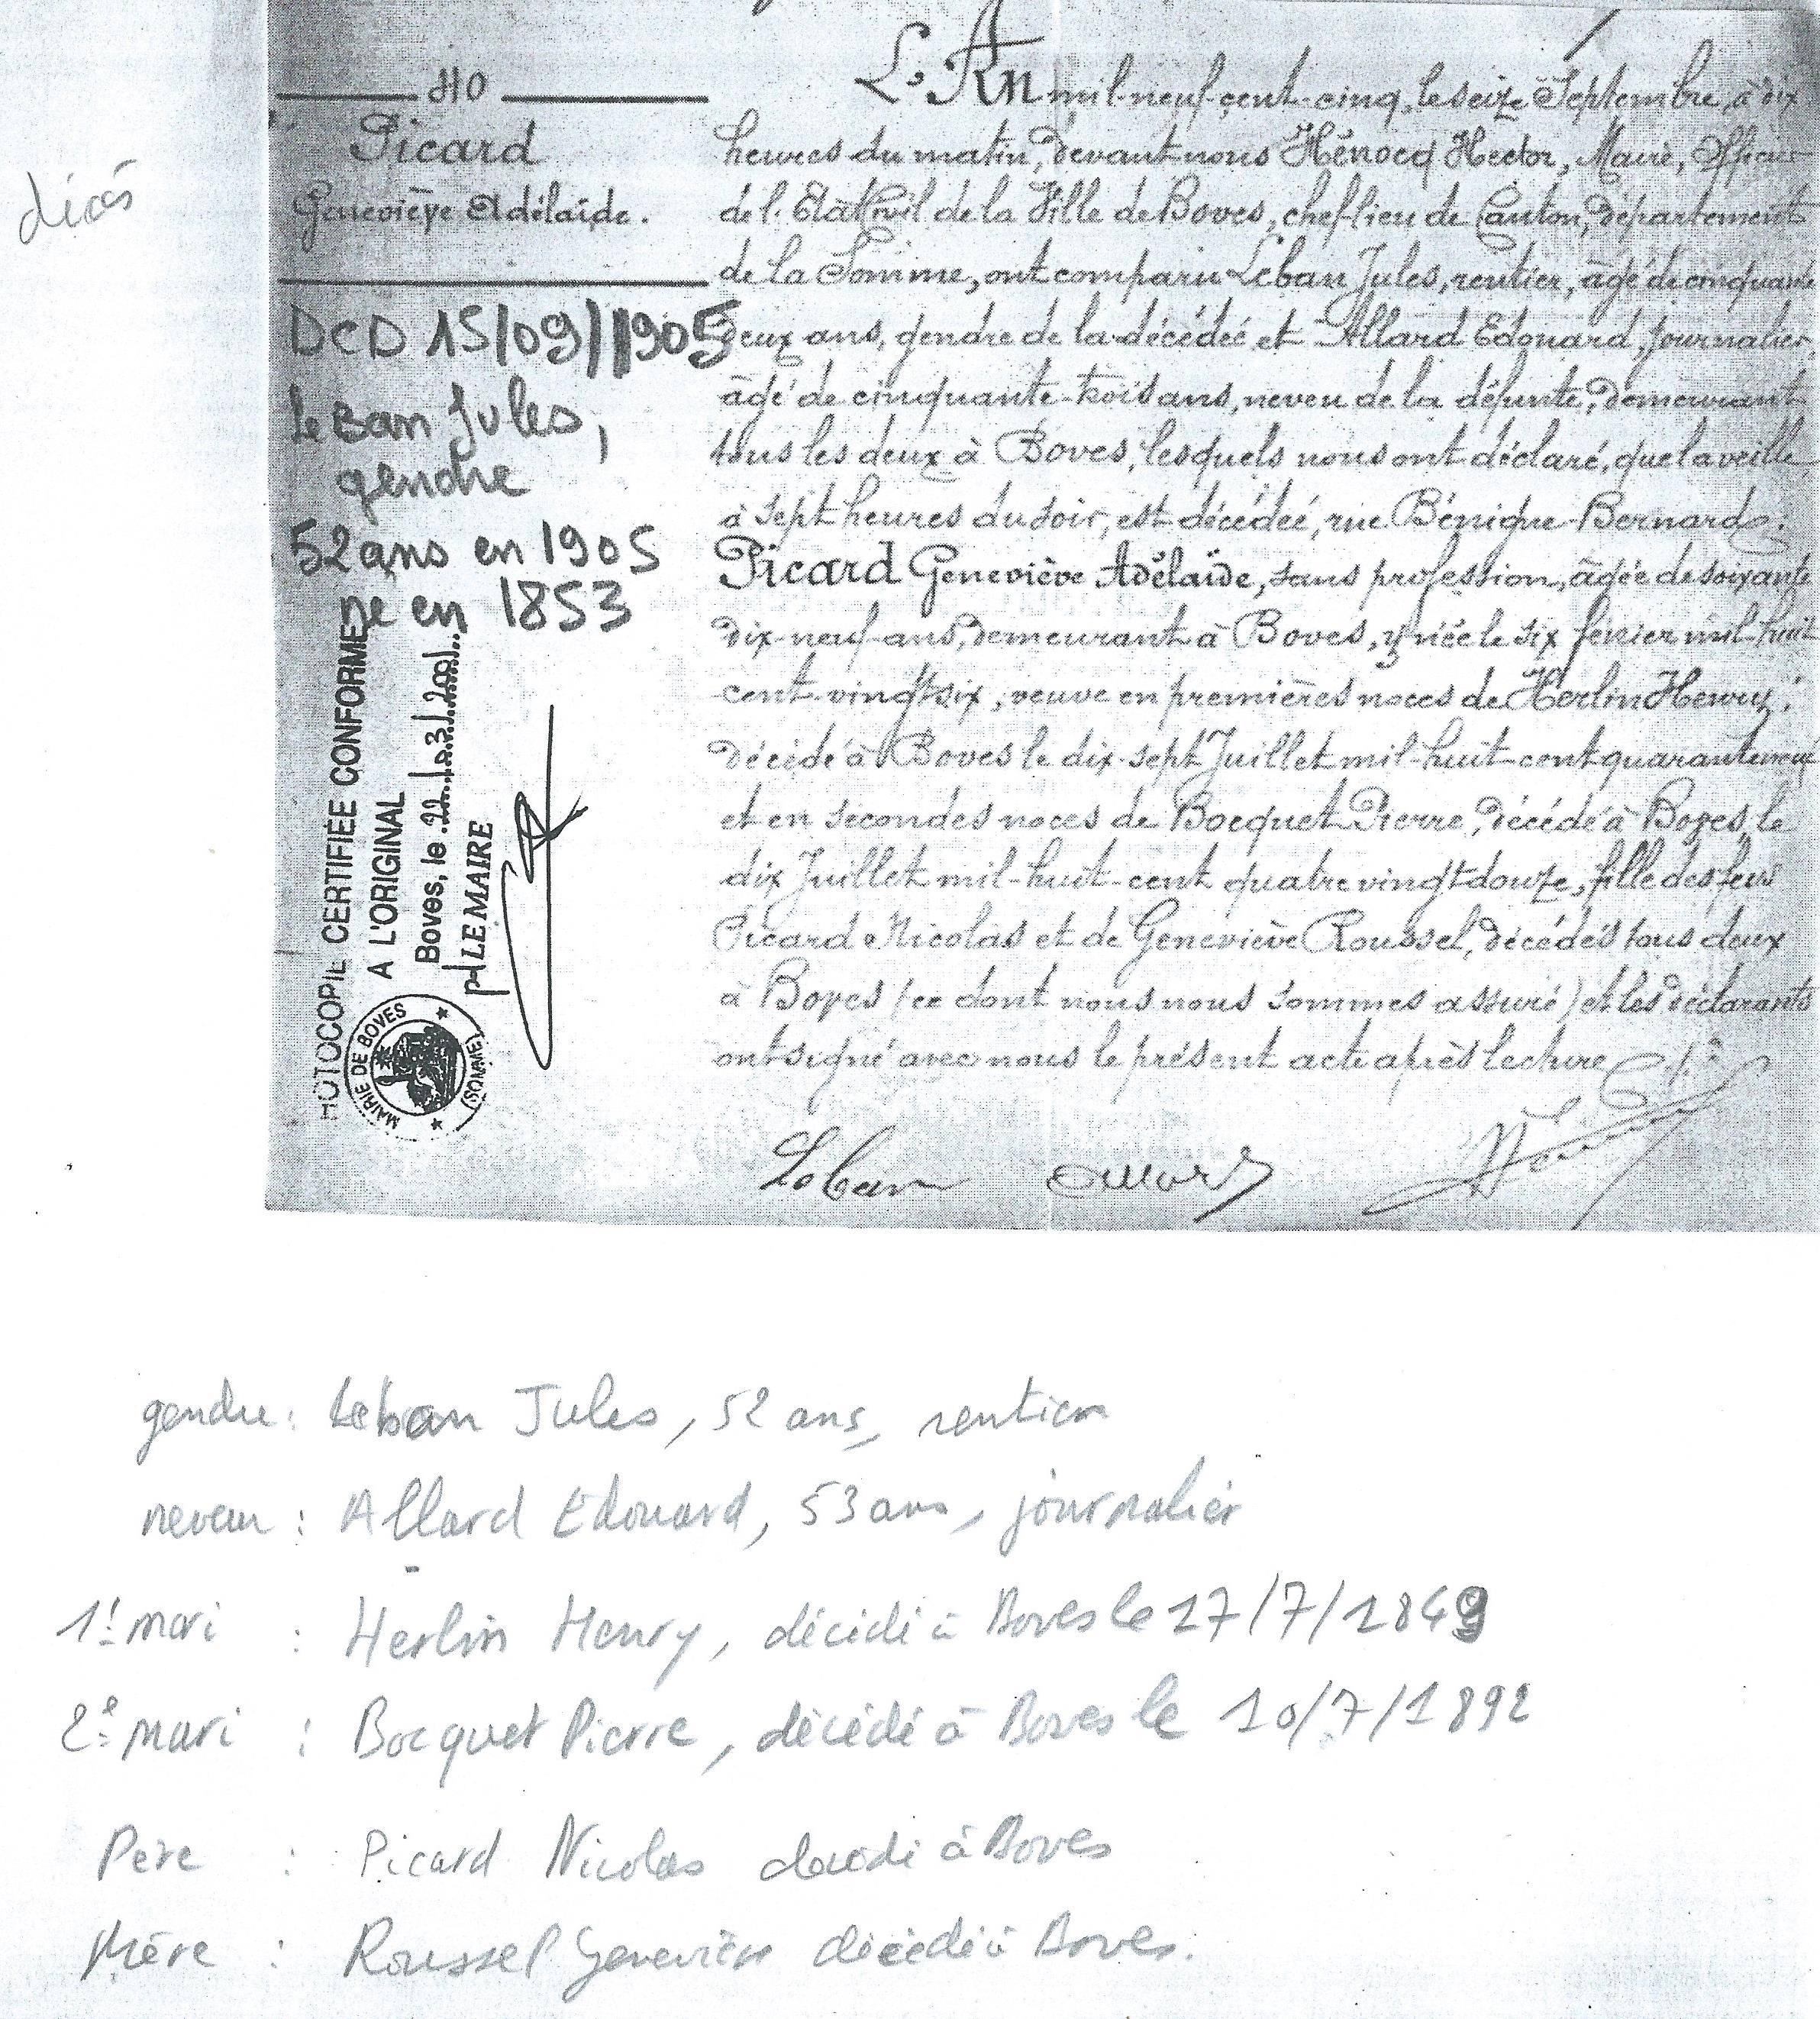 décès
40
Picard
Geneviève Adélaïde.
DCD 15/09/1905
Leban Jules,
gendre
52 ans en 1905
né en 1853
HOTOCOPIE CERTIFIÉE CONFORME
A L'ORIGINAL
Boves, le 22.03.2001
p/LE MAIRE
MAIRIE DE BOVES
(SOMME)
L'An mil-neuf-cent-cinq, le seize Septembre, à dix
heures du matin, devant nous Hénocq Hector, Maire, Officier
de l'Etat Civil de la Ville de Boves, chef-lieu de Canton, département
de la Somme, ont comparu Leban Jules, rentier, âgé de cinquante
deux ans, gendre de la décédée et Allard Edouard, journalier,
âgé de cinquante-trois ans, neveu de la défunte, demeurant
tous les deux à Boves, lesquels nous ont déclaré, que la veille
à sept heures du soir, est décédée, rue Bénigne-Bernard.
Picard Geneviève Adélaïde, sans profession, âgée de soixante
dix-neuf-ans, demeurant à Boves, y née le six février mil-huit
cent-vingt-six, veuve en premières noces de Herlin Henry,
décédé à Boves le dix-sept Juillet mil-huit-cent quarante neuf
et en secondes noces de Bocquet Pierre, décédé à Boves, le
dix Juillet mil-huit-cent quatre vingt douze, fille des feus
Picard Nicolas et de Geneviève Roussel, décédés tous deux
à Boves (ce dont nous nous sommes assuré) et les déclarants
ont signé avec nous le présent acte après lecture
Leban Allard
gendre : Leban Jules, 52 ans, rentier
neveu : Allard Edouard, 53 ans, journalier
1: mari : Herlin Henry, décédé à Boves le 17/7/1849
2e mari : Bocquet Pierre, décédé à Boves le 10/7/1892
Père : Picard Nicolas décédé à Boves
Mère : Roussel Geneviève décédé à Boves.